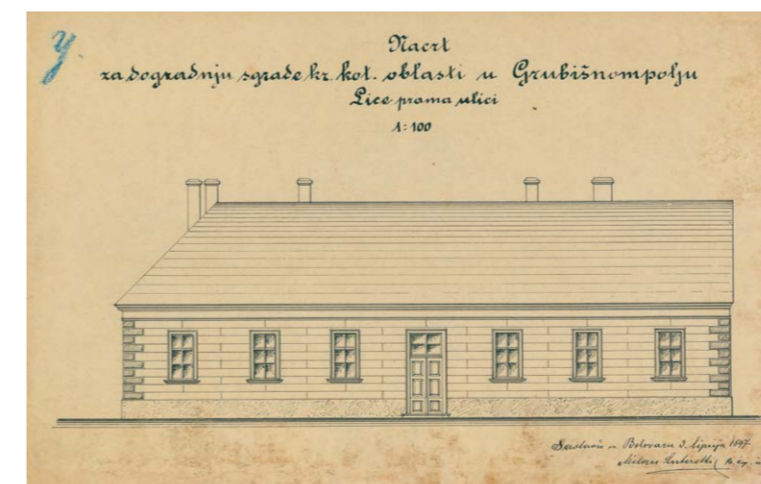 y.
Nacrt
za dogradnju sgrade kr. kot. oblasti u Grubišnompolju
Lice prama ulici
1:100
Sastavio u Belovaru 3. lipnja 1897
Milan